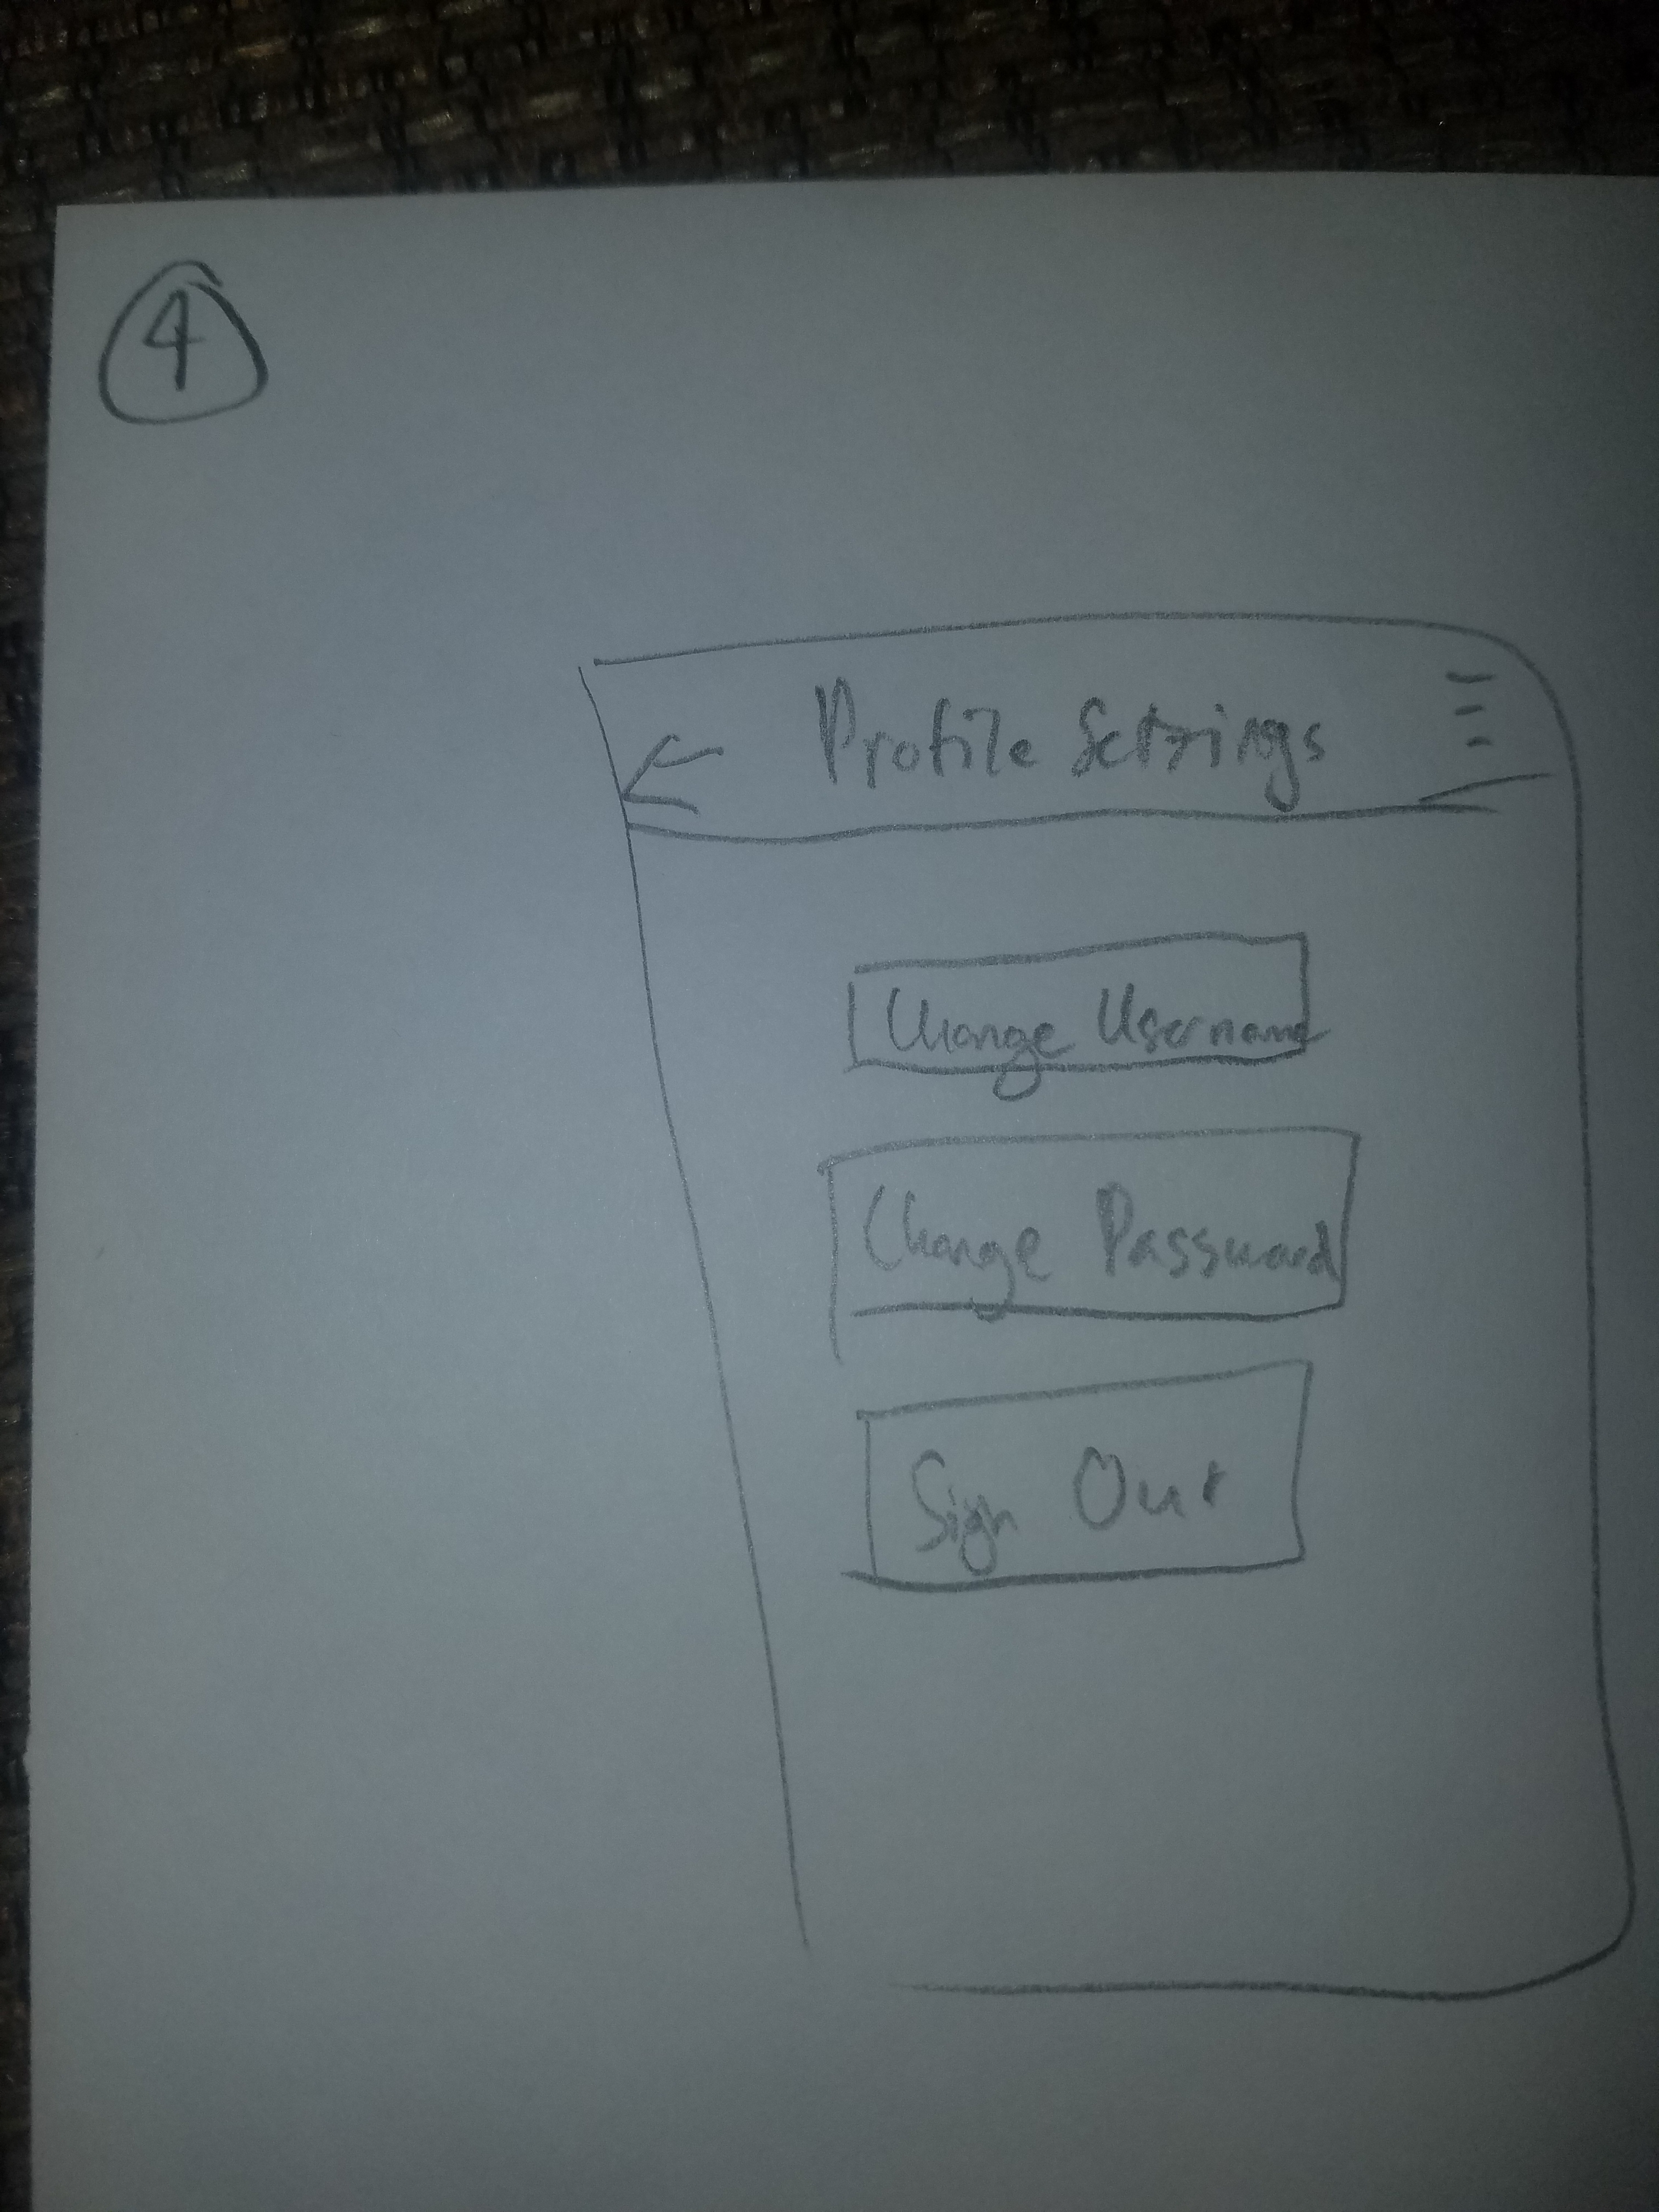 4
Profile Settings
Change Username
Change Password
Sign Out